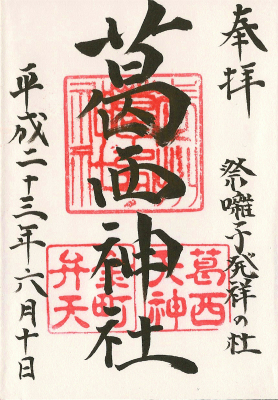 奉拝
祭囃子発祥の社
葛西神社
葛西
天神
金町
弁天
平成二十三年六月十日